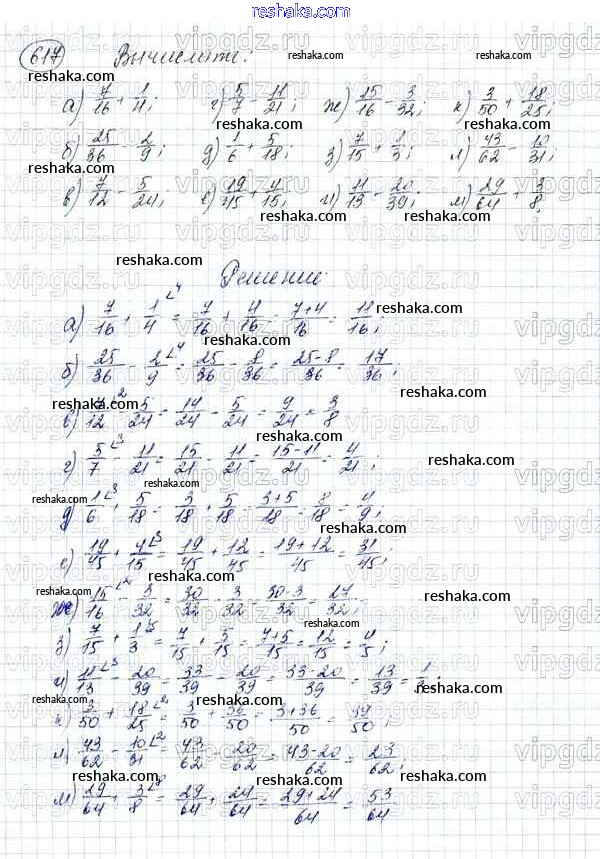 reshaka.com
617 Вычислить:
а) 7/16 + 1/4; г) 5/7 - 11/21; ж) 15/16 - 3/32; к) 3/50 + 18/25;
б) 25/36 - 2/9; д) 1/6 + 5/18; з) 7/15 + 1/3; л) 43/62 - 10/31;
в) 7/12 - 5/24; е) 19/45 + 4/15; и) 11/13 - 20/39; м) 29/64 + 3/8.
Решение:
а) 7/16 + 1/4 ∠4 = 7/16 + 4/16 = 7+4/16 = 11/16;
б) 25/36 - 2/9 ∠4 = 25/36 - 8/36 = 25-8/36 = 17/36;
в) 7/12 ∠2 - 5/24 = 14/24 - 5/24 = 9/24 = 3/8
г) 5/7 ∠3 - 11/21 = 15/21 - 11/21 = 15-11/21 = 4/21;
д) 1/6 ∠3 + 5/18 = 3/18 + 5/18 = 3+5/18 = 8/18 = 4/9;
е) 19/45 + 4/15 ∠3 = 19/45 + 12/45 = 19+12/45 = 31/45;
ж) 15/16 ∠2 - 3/32 = 30/32 - 3/32 = 30-3/32 = 27/32;
з) 7/15 + 1/3 ∠5 = 7/15 + 5/15 = 7+5/15 = 12/15 = 4/5;
и) 11/13 ∠3 - 20/39 = 33/39 - 20/39 = 33-20/39 = 13/39 = 1/3;
к) 3/50 + 18/25 ∠2 = 3/50 + 36/50 = 3+36/50 = 39/50;
л) 43/62 - 10/31 ∠2 = 43/62 - 20/62 = 43-20/62 = 23/62;
м) 29/64 + 3/8 ∠8 = 29/64 + 24/64 = 29+24/64 = 53/64
vipgdz.ru
reshaka.com